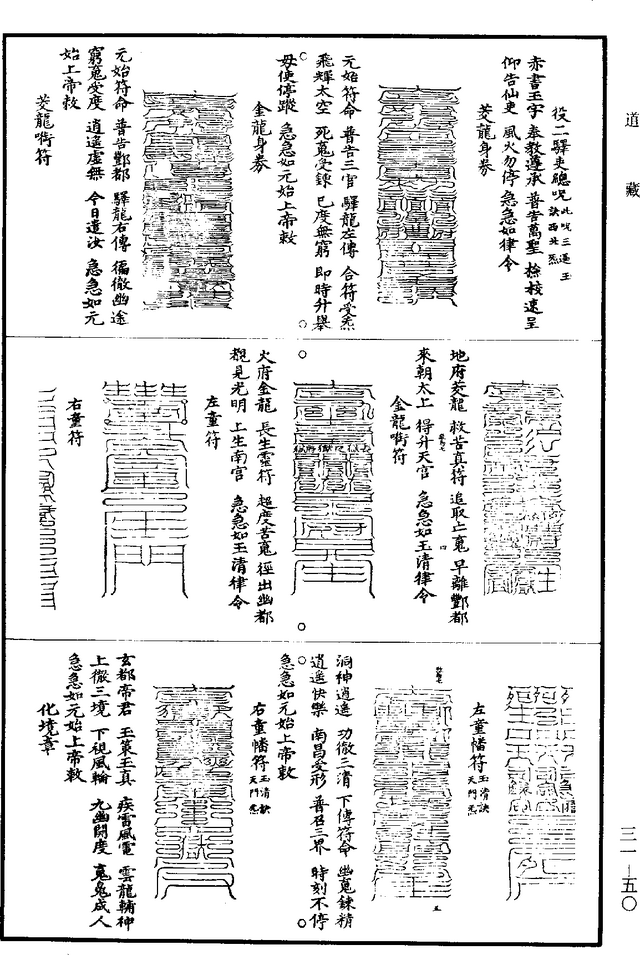 道藏
役二驛吏總咒此咒三遍玉訣西北炁
赤書玉字　奉教遵承　普告萬聖　檢校速呈
仰告仙吏　風火勿停　急急如律令
茭龍身券
元始符命　普告三官　驛龍左傳　合符受炁
飛輝太空　死䰟受鍊　已度無窮　即時升舉
毋使停蹤　急急如元始上帝敕
金龍身券
元始符命　普告酆都　驛龍右傳　徧徹幽途
窮䰟受度　逍遙虛無　今日遣汝　急急如元
始上帝敕
茭龍啣符
地府茭龍　救苦真符　追取亡䰟　早離酆都
來朝太上　得升天官　急急如玉清律令
金龍啣符
火府金龍　長生靈符　超度苦䰟　徑出幽都
覩見光明　上生南宮　急急如玉清律令
左童符
右童符
左童幡符玉清訣天門炁
洞神逍遙　功徹三清　下傳符命　幽䰟鍊精
逍遙快樂　南昌受形　普召三界　時刻不停
急急如元始上帝敕
右童幡符玉清訣天門炁
玄都帝君　玉策王真　疾雷風電　雲龍輔神
上徹三境　下視風輪　九幽開度　䰟䰟成人
急急如元始上帝敕
化境章
三一—五〇